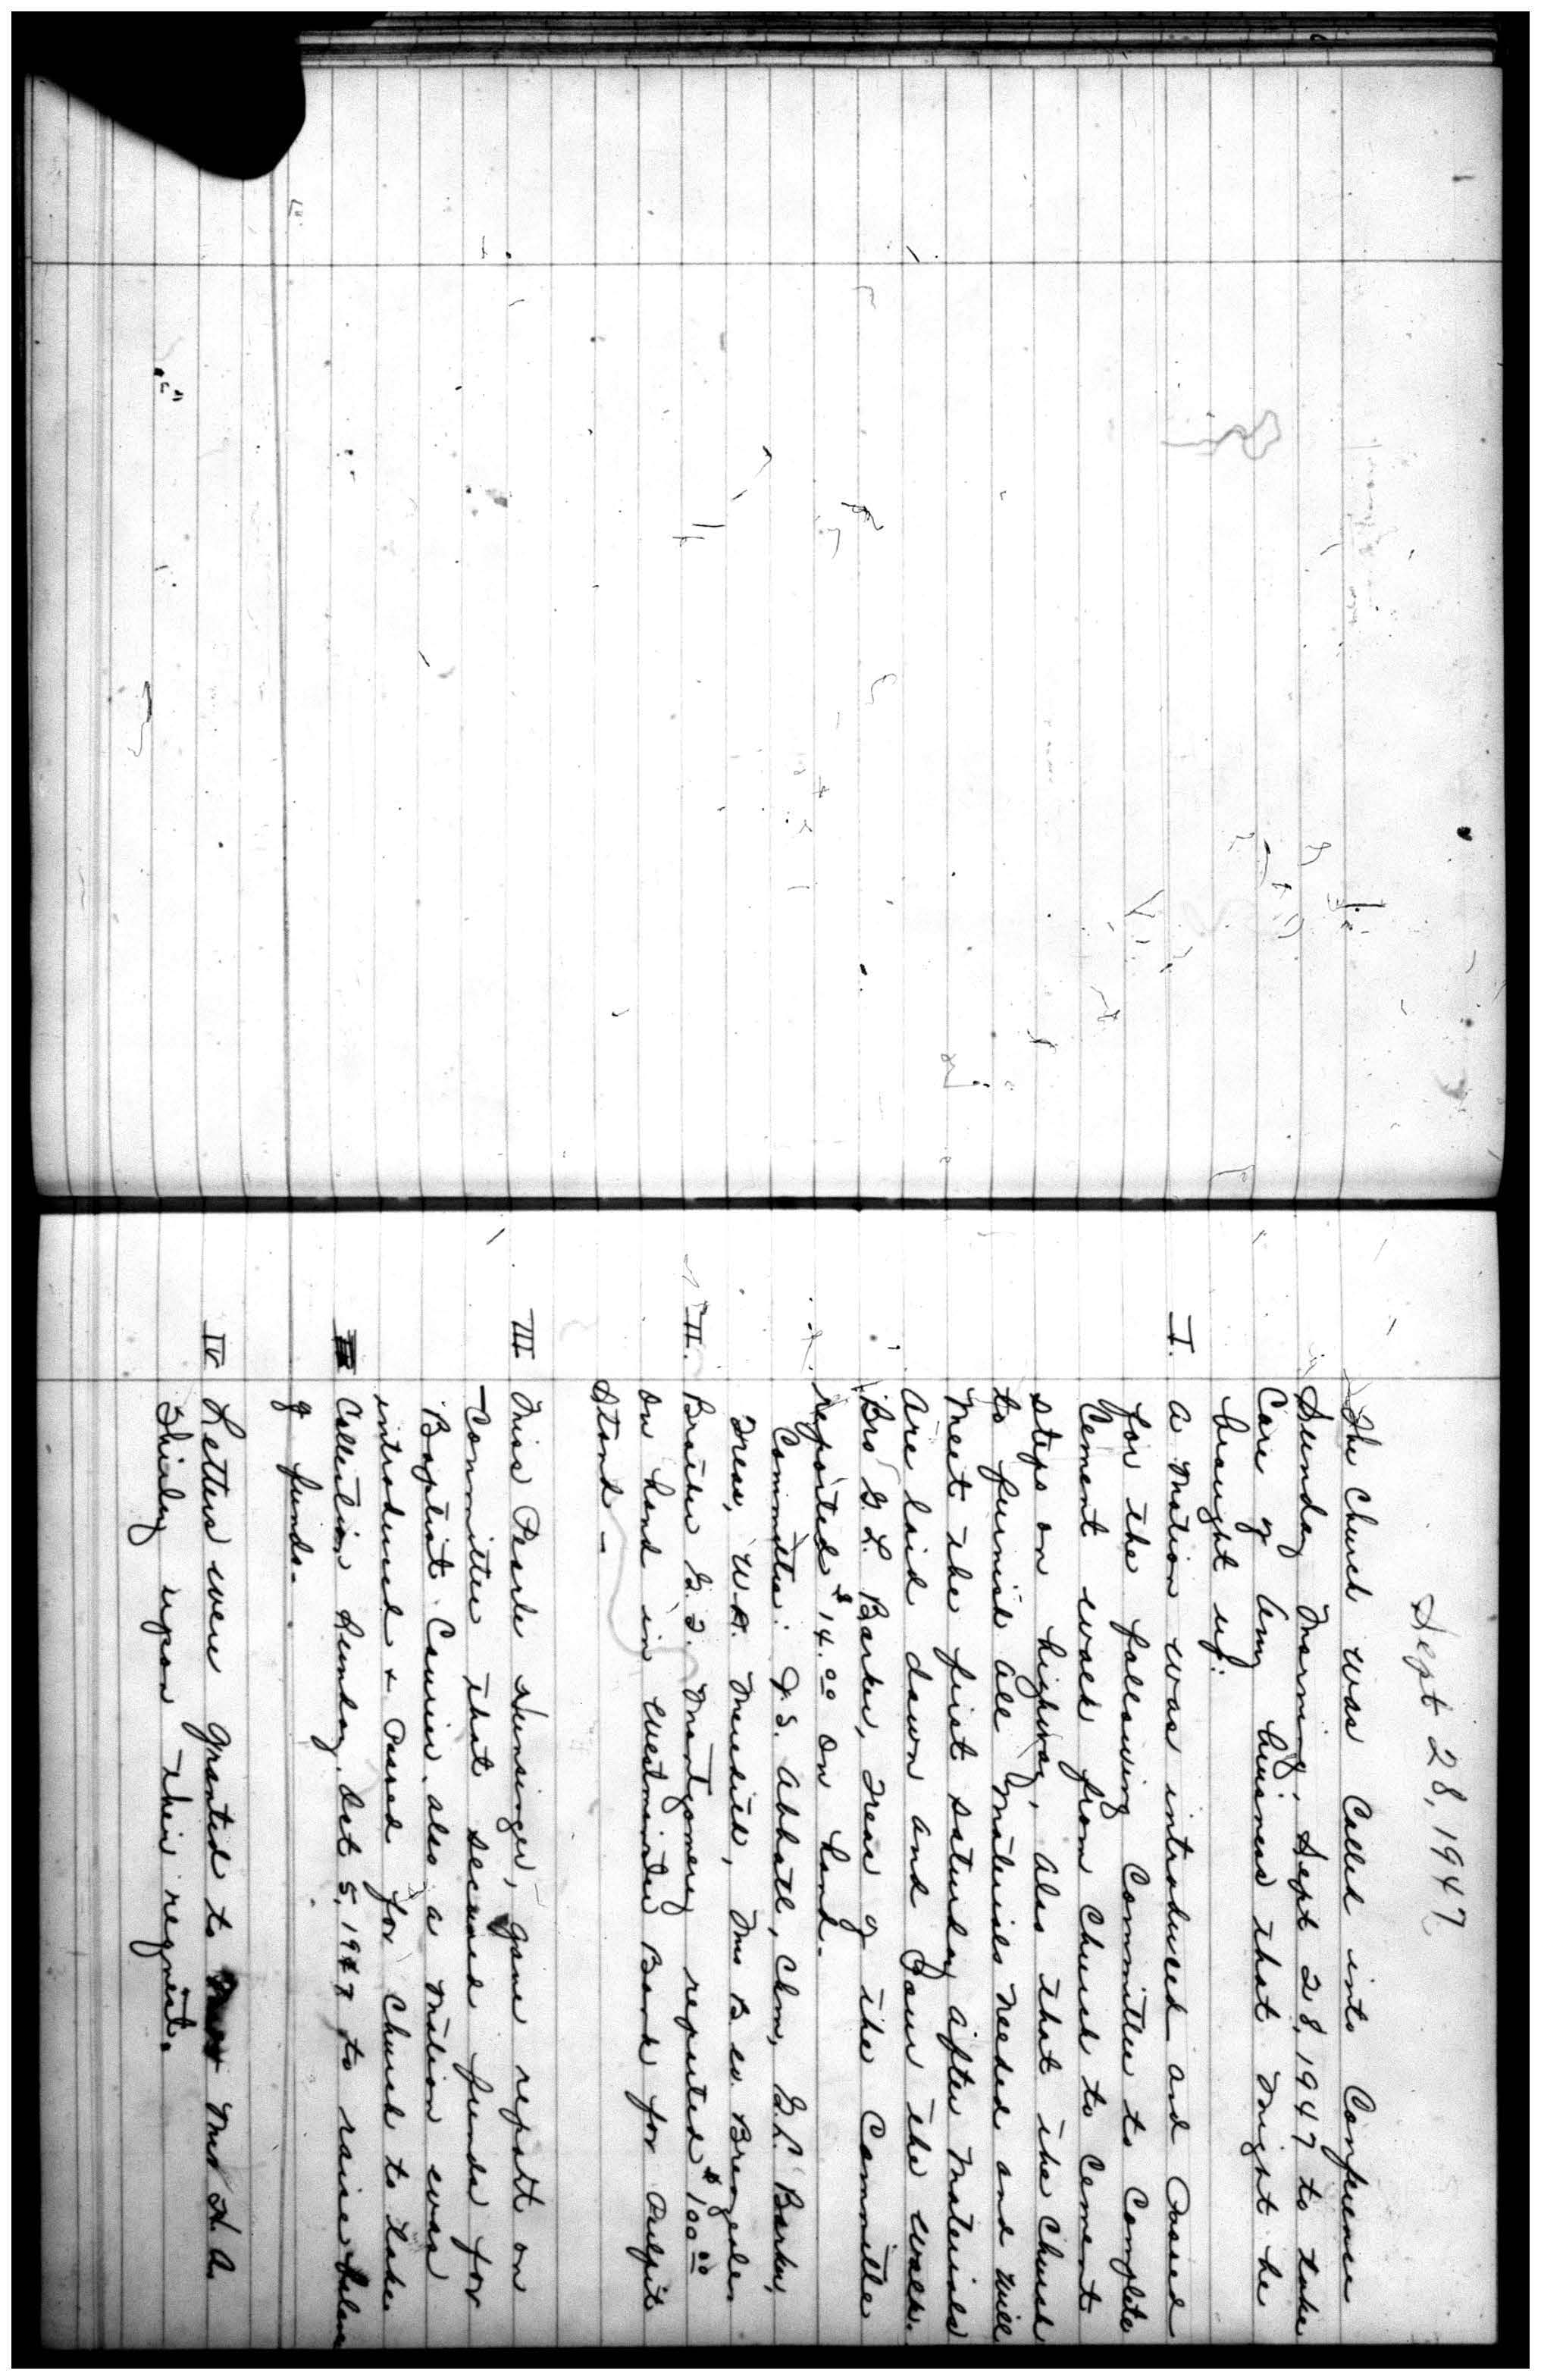 Sept 28, 1947
The Church was Called into Conference
Sunday Morning, Sept 28, 1947 to take
Care of Any business that Might be
brought up:
I. A Motion was introduced and Passed
for the following Committee to Complete
Cement walk from Church to Cement
steps on highway, also that the Church
to furnish all Materials needed and will
Meet the first Saturday after Materials
Are laid down and Pour the walk.
Bro G. L. Barker, Treas of the Committee
reported $14.00 on hand.
Committee: J. S. Abbott, Chm, G. L. Barker,
Treas, W. A. Meredith, Mrs B. W.
II. Brother G. T. Montgomery reported $100.00
on hand in Westminster Bank for Pulpit
Stand -
III Miss Pearle Hunsinger, gave report on
Committee that secured funds for
Baptist Courier. also a Motion was
introduced & Passed for Church to take
Collection Sunday, Oct 5, 1947 to raise balance
of funds.
IV Letters were granted to Mrs H. A.
Shirley upon their request.